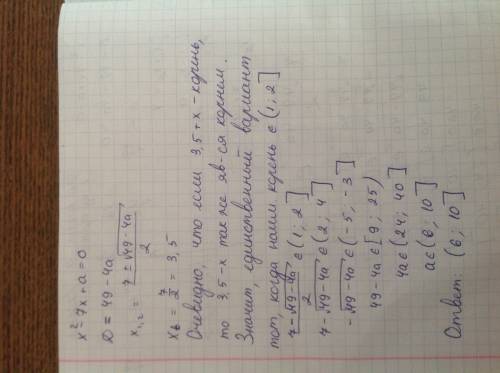 x² - 7x + a = 0
D = 49 - 4a
x₁,₂ = (7 ± √(49 - 4a)) / 2
x_b = 7/2 = 3,5
Очевидно, что если 3,5 + x - корень,
то 3,5 - x также яв-ся корнем.
Значит, единственный вариант
тот, когда наим. корень ∈ (1; 2]
(7 - √(49 - 4a)) / 2 ∈ (1; 2]
7 - √(49 - 4a) ∈ (2; 4]
-√(49 - 4a) ∈ (-5; -3]
49 - 4a ∈ [9; 25)
4a ∈ (24; 40]
a ∈ (6; 10]
Ответ: (6; 10]